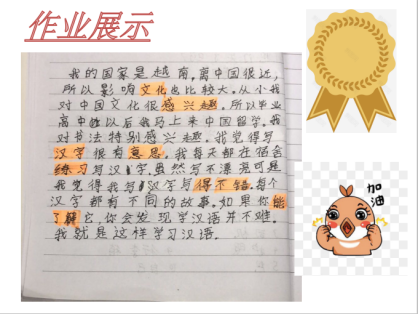 作业展示
我的国家是越南,离中国很近,
所以影响文化也比较大。从小我
对中国文化很感兴趣。所以毕业
高中以后我马上来中国留学。我
对书法特别感兴趣。我觉得写
汉字很有意思,我每天都在宿舍
练习写汉字。虽然写不漂亮可是
我觉得我写汉字写得不错。每个
汉字都有不同的故事。如果你能
了解它,你会发现学汉语并不难。
我就是这样学习汉语。
加油